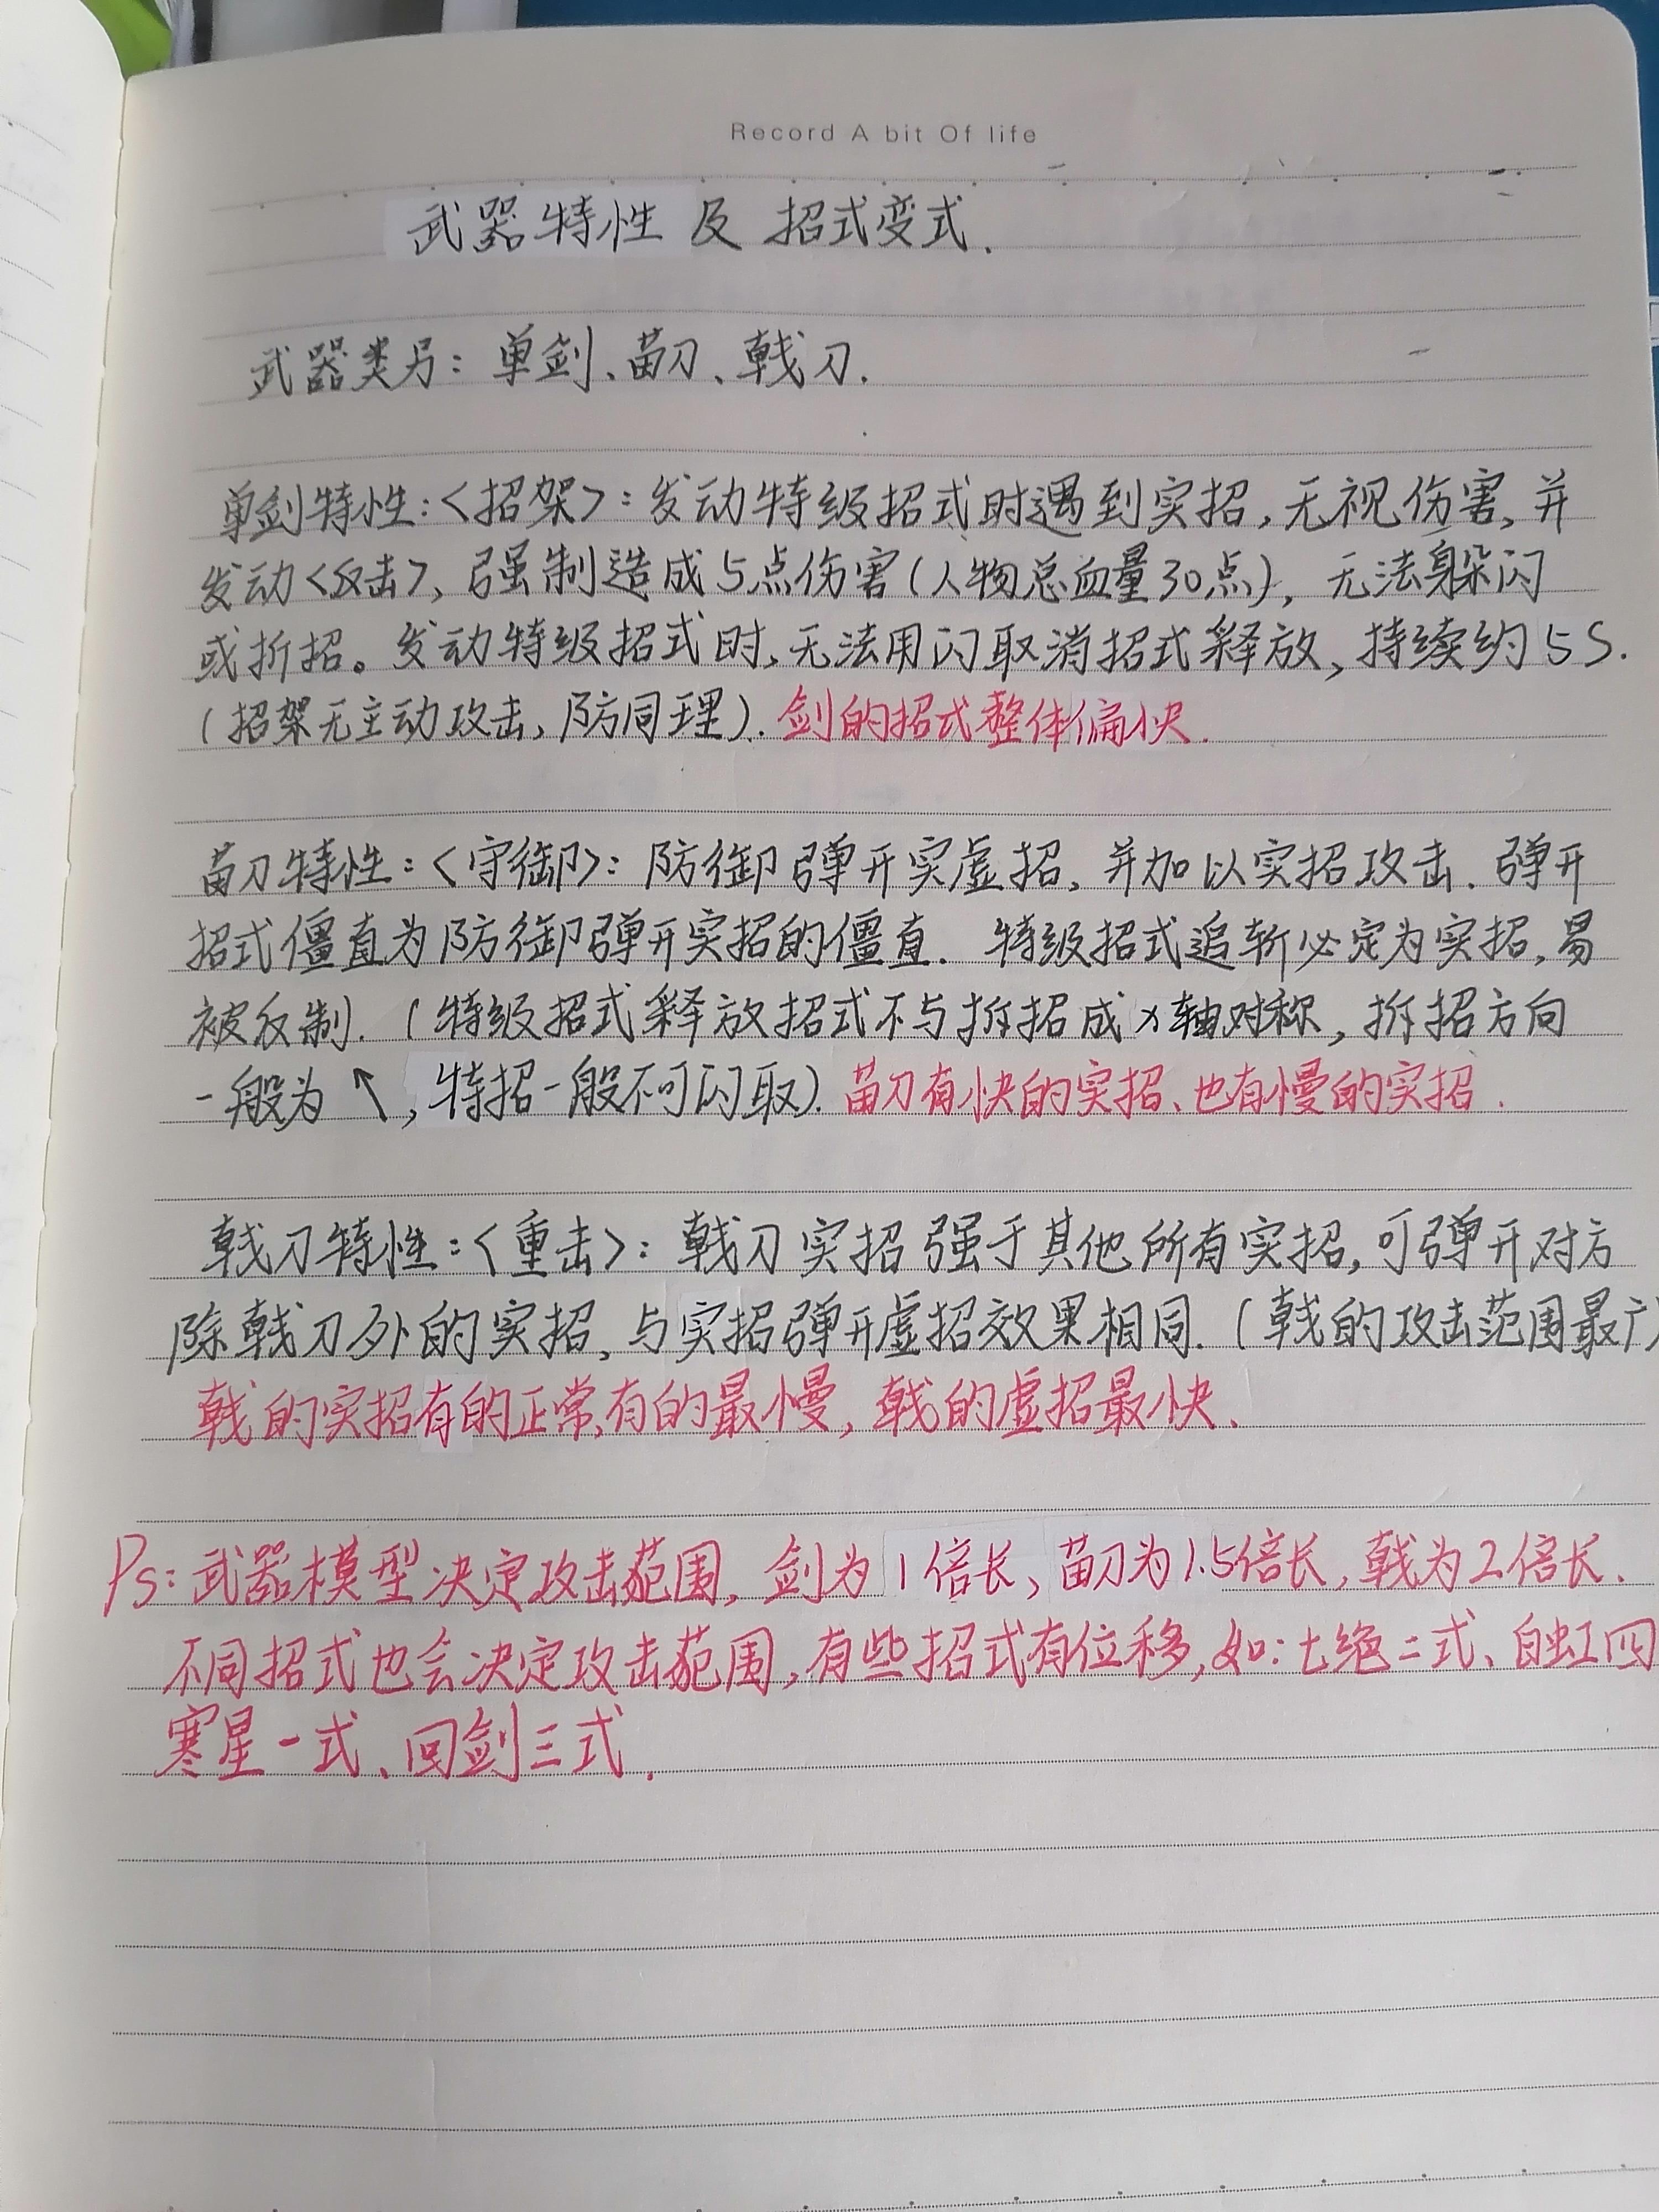 Record A bit Of life
武器特性 及 招式变式.
武器类另：单剑、苗刀、戟刀.
单剑特性：<招架>：发动特级招式时遇到实招，无视伤害，并
发动<反击>，强制造成5点伤害(人物总血量30点)，无法躲闪
或折招。发动特级招式时，无法用闪取消招式释放，持续约5S.
(招架无主动攻击，防同理). 剑的招式整体偏快.
苗刀特性：<守御>：防御弹开实虚招，并加以实招攻击. 弹开
招式僵直为防御弹开实招的僵直. 特级招式追斩必定为实招，易
被反制. (特级招式释放招式不与拆招成x轴对称，拆招方向
一般为↖，特招一般不可闪取). 苗刀有快的实招、也有慢的实招.
戟刀特性：<重击>：戟刀实招强于其他所有实招，可弹开对方
除戟刀外的实招，与实招弹开虚招效果相同. (戟的攻击范围最广)
戟的实招有的正常，有的最慢，戟的虚招最快.
Ps：武器模型决定攻击范围，剑为1倍长，苗刀为1.5倍长，戟为2倍长.
不同招式也会决定攻击范围，有些招式有位移，如：七绝二式、白虹四
寒星一式、回剑三式.